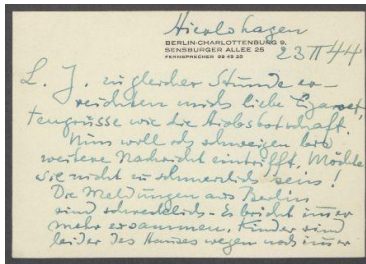 Hierlshagen
BERLIN-CHARLOTTENBURG 9,
SENSBURGER ALLEE 25
FERNSPRECHER 99 45 20
23 II 44
L. J. zu gleicher Stunde er-
reichten mich liebe Cigaret-
tengrüsse wie die Hiobsbotschaft.
Nun will ich schweigen bis
weitere Nachricht eintrifft. Möchte
sie nicht zu schmerzlich sein!
Die Meldungen aus Berlin
sind schrecklich - Es bricht immer
mehr zusammen. Kinder sind
leider des Hauses wegen noch immer